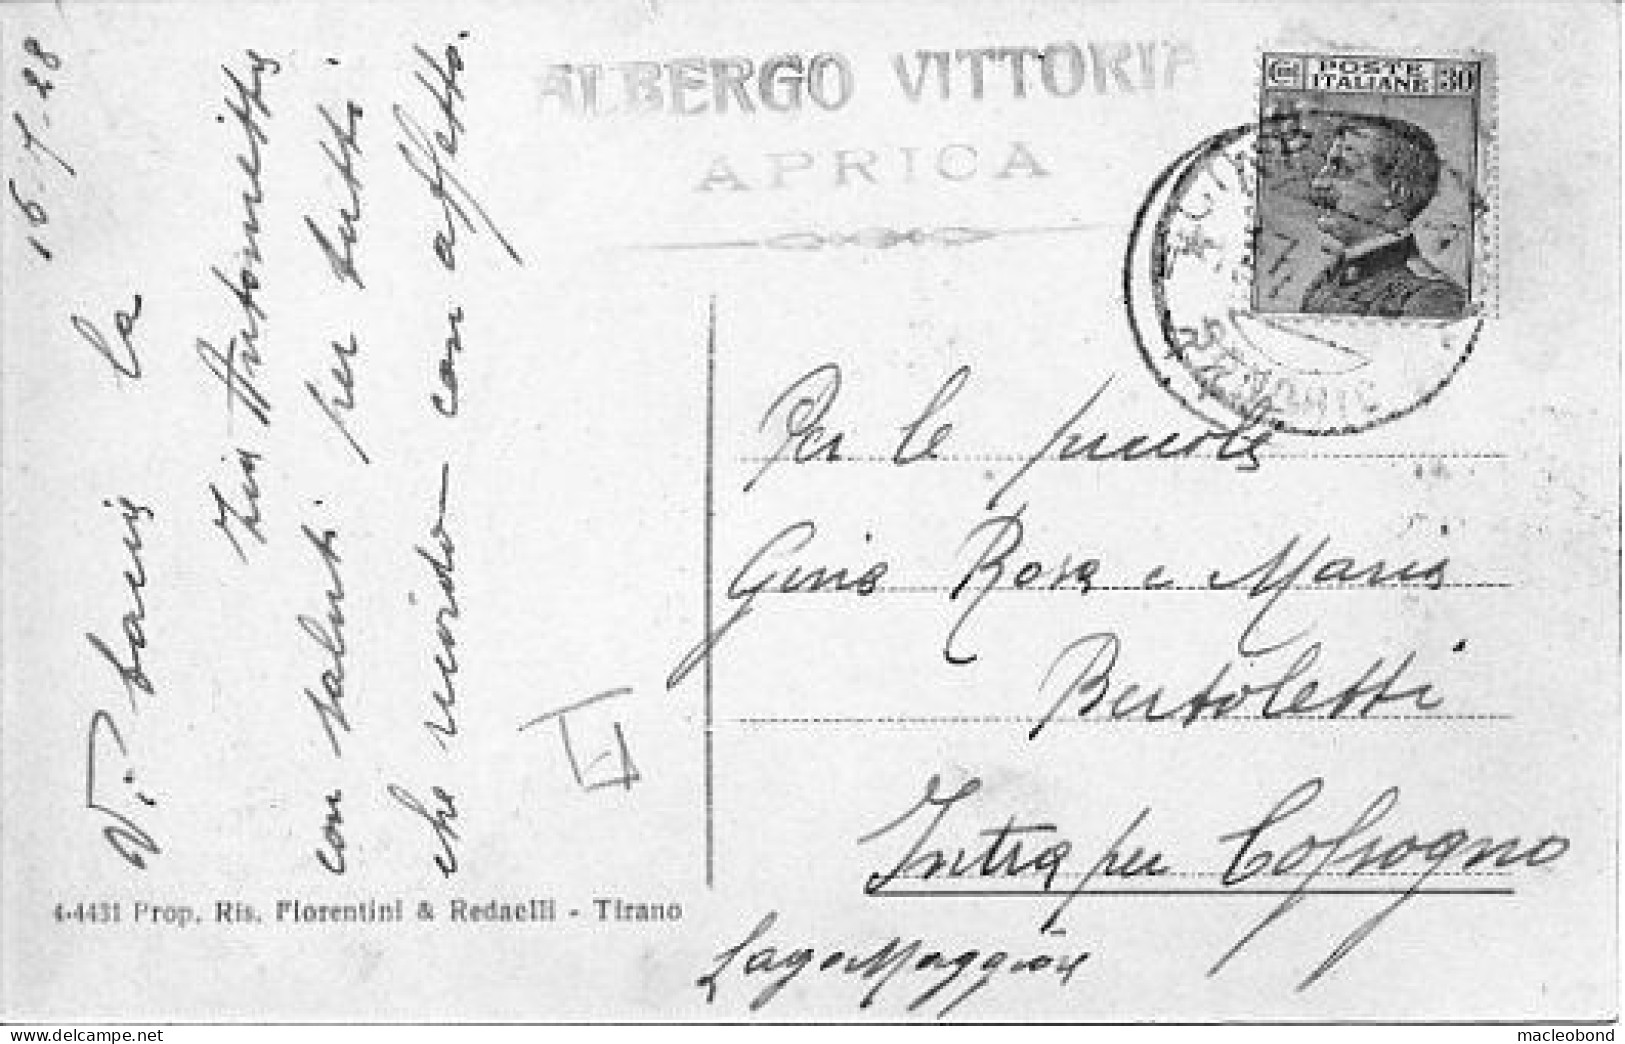 ALBERGO VITTORIA
APRICA
POSTE
ITALIANE 30
16-7-28
Vi bacia la
zia Antonietta
con saluti per tutti
che ricordo con affetto.
Per le piccole
Gina Rosa e Maria
Bertoletti
Intra per Cossogno
Lago Maggiore
4-4431 Prop. Ris. Fiorentini & Redaelli - Tirano
macleobond